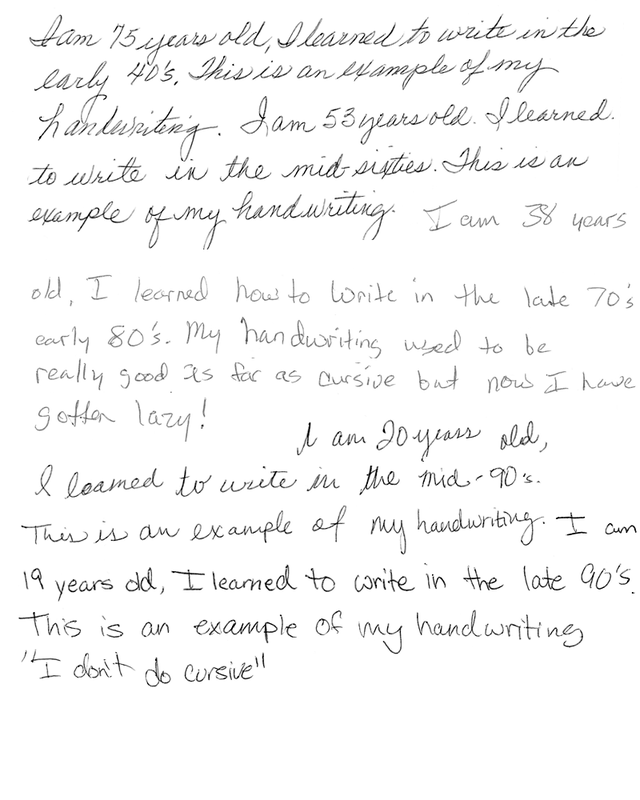 I am 75 years old, I learned to write in the
early 40's. This is an example of my
handwriting. I am 53 years old. I learned.
to write in the mid-sixties. This is an
example of my handwriting. I am 38 years
old, I learned how to write in the late 70's
early 80's. My handwriting used to be
really good as far as cursive but now I have
gotten lazy!
I am 20 years old,
I learned to write in the mid-90's.
This is an example of my handwriting. I am
19 years old, I learned to write in the late 90's.
This is an example of my handwriting
"I don't do cursive"